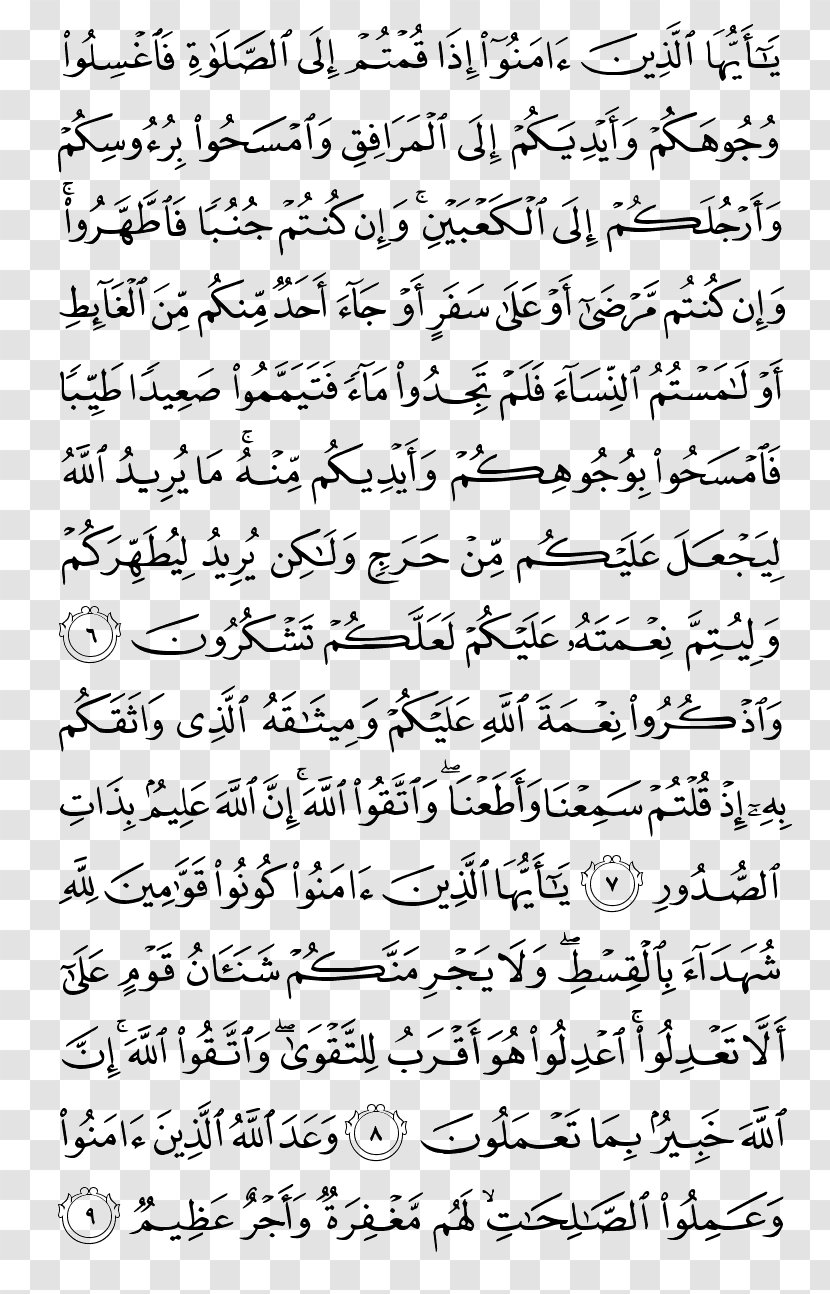 يَـٰٓأَيُّهَا ٱلَّذِينَ ءَامَنُوٓا۟ إِذَا قُمْتُمْ إِلَى ٱلصَّلَوٰةِ فَٱغْسِلُوا۟
وُجُوهَكُمْ وَأَيْدِيَكُمْ إِلَى ٱلْمَرَافِقِ وَٱمْسَحُوا۟ بِرُءُوسِكُمْ
وَأَرْجُلَكُمْ إِلَى ٱلْكَعْبَيْنِ ۚ وَإِن كُنتُمْ جُنُبًا فَٱطَّهَّرُوا۟ ۚ
وَإِن كُنتُم مَّرْضَىٰٓ أَوْ عَلَىٰ سَفَرٍ أَوْ جَآءَ أَحَدٌ مِّنكُم مِّنَ ٱلْغَآئِطِ
أَوْ لَـٰمَسْتُمُ ٱلنِّسَآءَ فَلَمْ تَجِدُوا۟ مَآءً فَتَيَمَّمُوا۟ صَعِيدًا طَيِّبًا
فَٱمْسَحُوا۟ بِوُجُوهِكُمْ وَأَيْدِيكُم مِّنْهُ ۚ مَا يُرِيدُ ٱللَّهُ
لِيَجْعَلَ عَلَيْكُم مِّنْ حَرَجٍ وَلَـٰكِن يُرِيدُ لِيُطَهِّرَكُمْ
وَلِيُتِمَّ نِعْمَتَهُۥ عَلَيْكُمْ لَعَلَّكُمْ تَشْكُرُونَ ٦
وَٱذْكُرُوا۟ نِعْمَةَ ٱللَّهِ عَلَيْكُمْ وَمِيثَـٰقَهُ ٱلَّذِى وَاثَقَكُم
بِهِۦٓ إِذْ قُلْتُمْ سَمِعْنَا وَأَطَعْنَا ۖ وَٱتَّقُوا۟ ٱللَّهَ ۚ إِنَّ ٱللَّهَ عَلِيمٌۢ بِذَاتِ
ٱلصُّدُورِ ٧ يَـٰٓأَيُّهَا ٱلَّذِينَ ءَامَنُوا۟ كُونُوا۟ قَوَّٰمِينَ لِلَّهِ
شُهَدَآءَ بِٱلْقِسْطِ ۖ وَلَا يَجْرِمَنَّكُمْ شَنَـَٔانُ قَوْمٍ عَلَىٰٓ
أَلَّا تَعْدِلُوا۟ ۚ ٱعْدِلُوا۟ هُوَ أَقْرَبُ لِلتَّقْوَىٰ ۖ وَٱتَّقُوا۟ ٱللَّهَ ۚ إِنَّ
ٱللَّهَ خَبِيرٌۢ بِمَا تَعْمَلُونَ ٨ وَعَدَ ٱللَّهُ ٱلَّذِينَ ءَامَنُوا۟
وَعَمِلُوا۟ ٱلصَّـٰلِحَـٰتِ ۙ لَهُم مَّغْفِرَةٌ وَأَجْرٌ عَظِيمٌ ٩